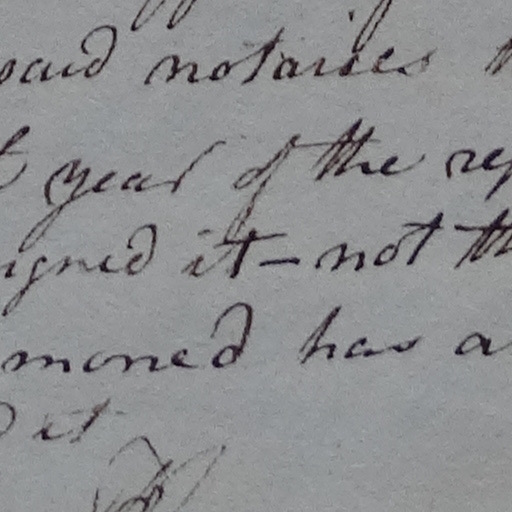 said notaries
year of the re
igned it - not th
moned has a
it